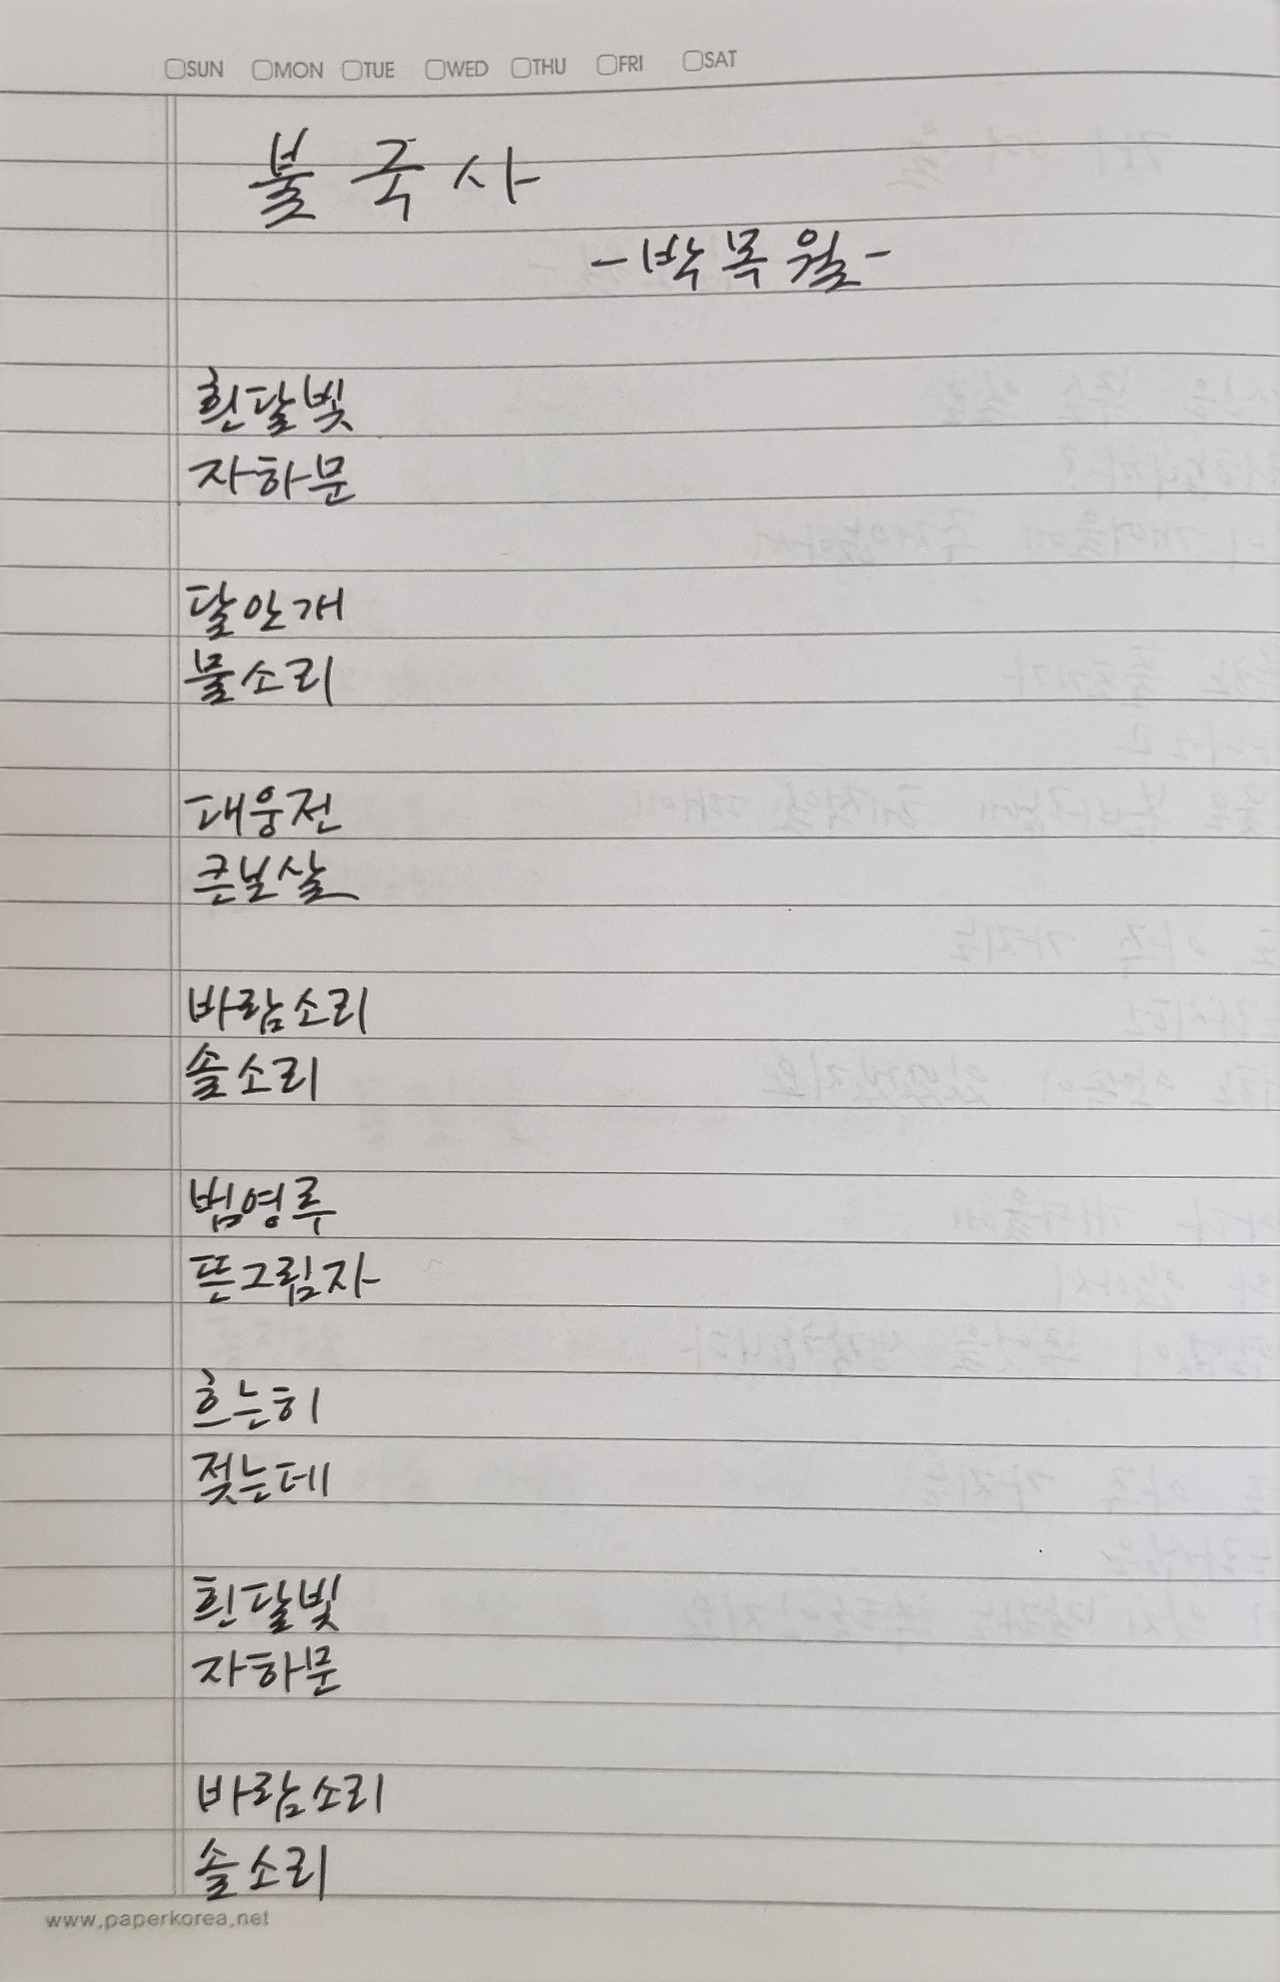 SUN MON TUE WED THU FRI SAT
불국사
-박목월-
흰달빛
자하문
달안개
물소리
대웅전
큰보살
바람소리
솔소리
범영루
뜬그림자
흐는히
젖는데
흰달빛
자하문
바람소리
솔소리
www.paperkorea.net